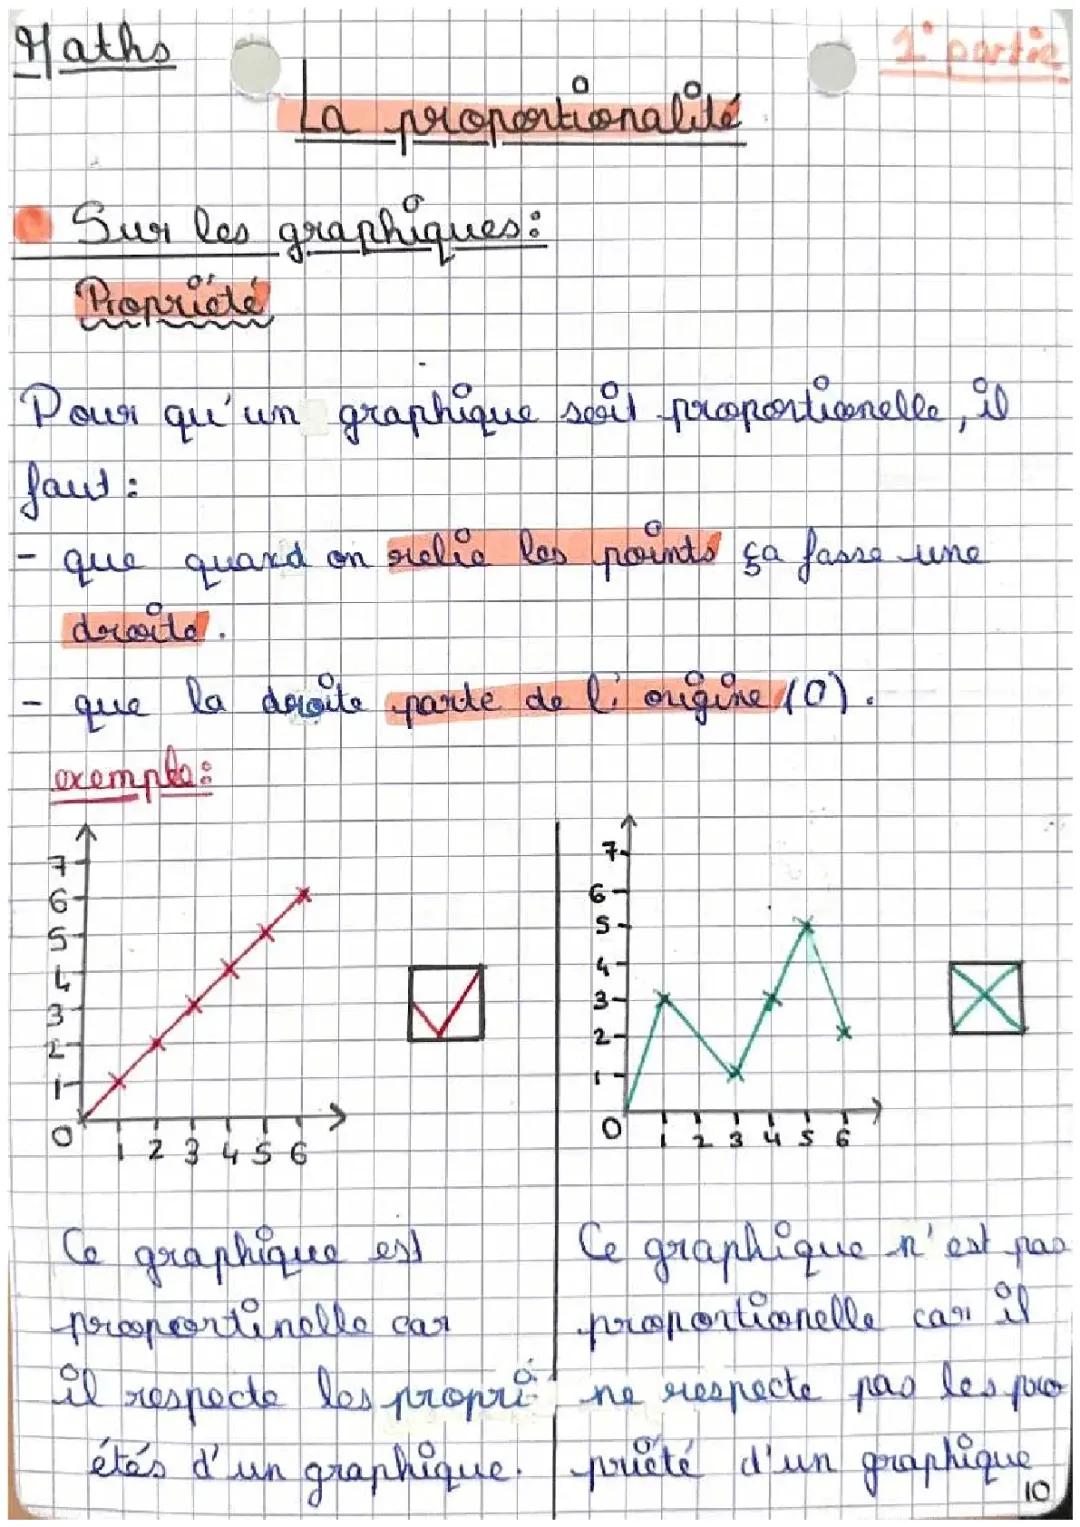 Maths
1° partie
La proportionalité
Sur les graphiques:
Propriété
Pour qu'un graphique soit proportionnelle, il
faut:
- que quand on relie les points ça fasse une
droite.
- que la droite parte de l'origine (0).
exemple:
7
6
5
4
3
2
1
0
1 2 3 4 5 6
7
6
5
4
3
2
1
0
1 2 3 4 5 6
Ce graphique est
proportinelle car
il respecte les propri
étés d'un graphique.
Ce graphique n'est pas
proportionelle car il
ne respecte pas les pro
priété d'un graphique
10